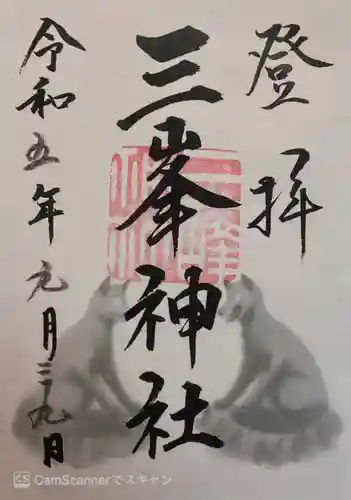 登拝
三峯神社
令和五年元月三九日
CS CamScannerでスキャン